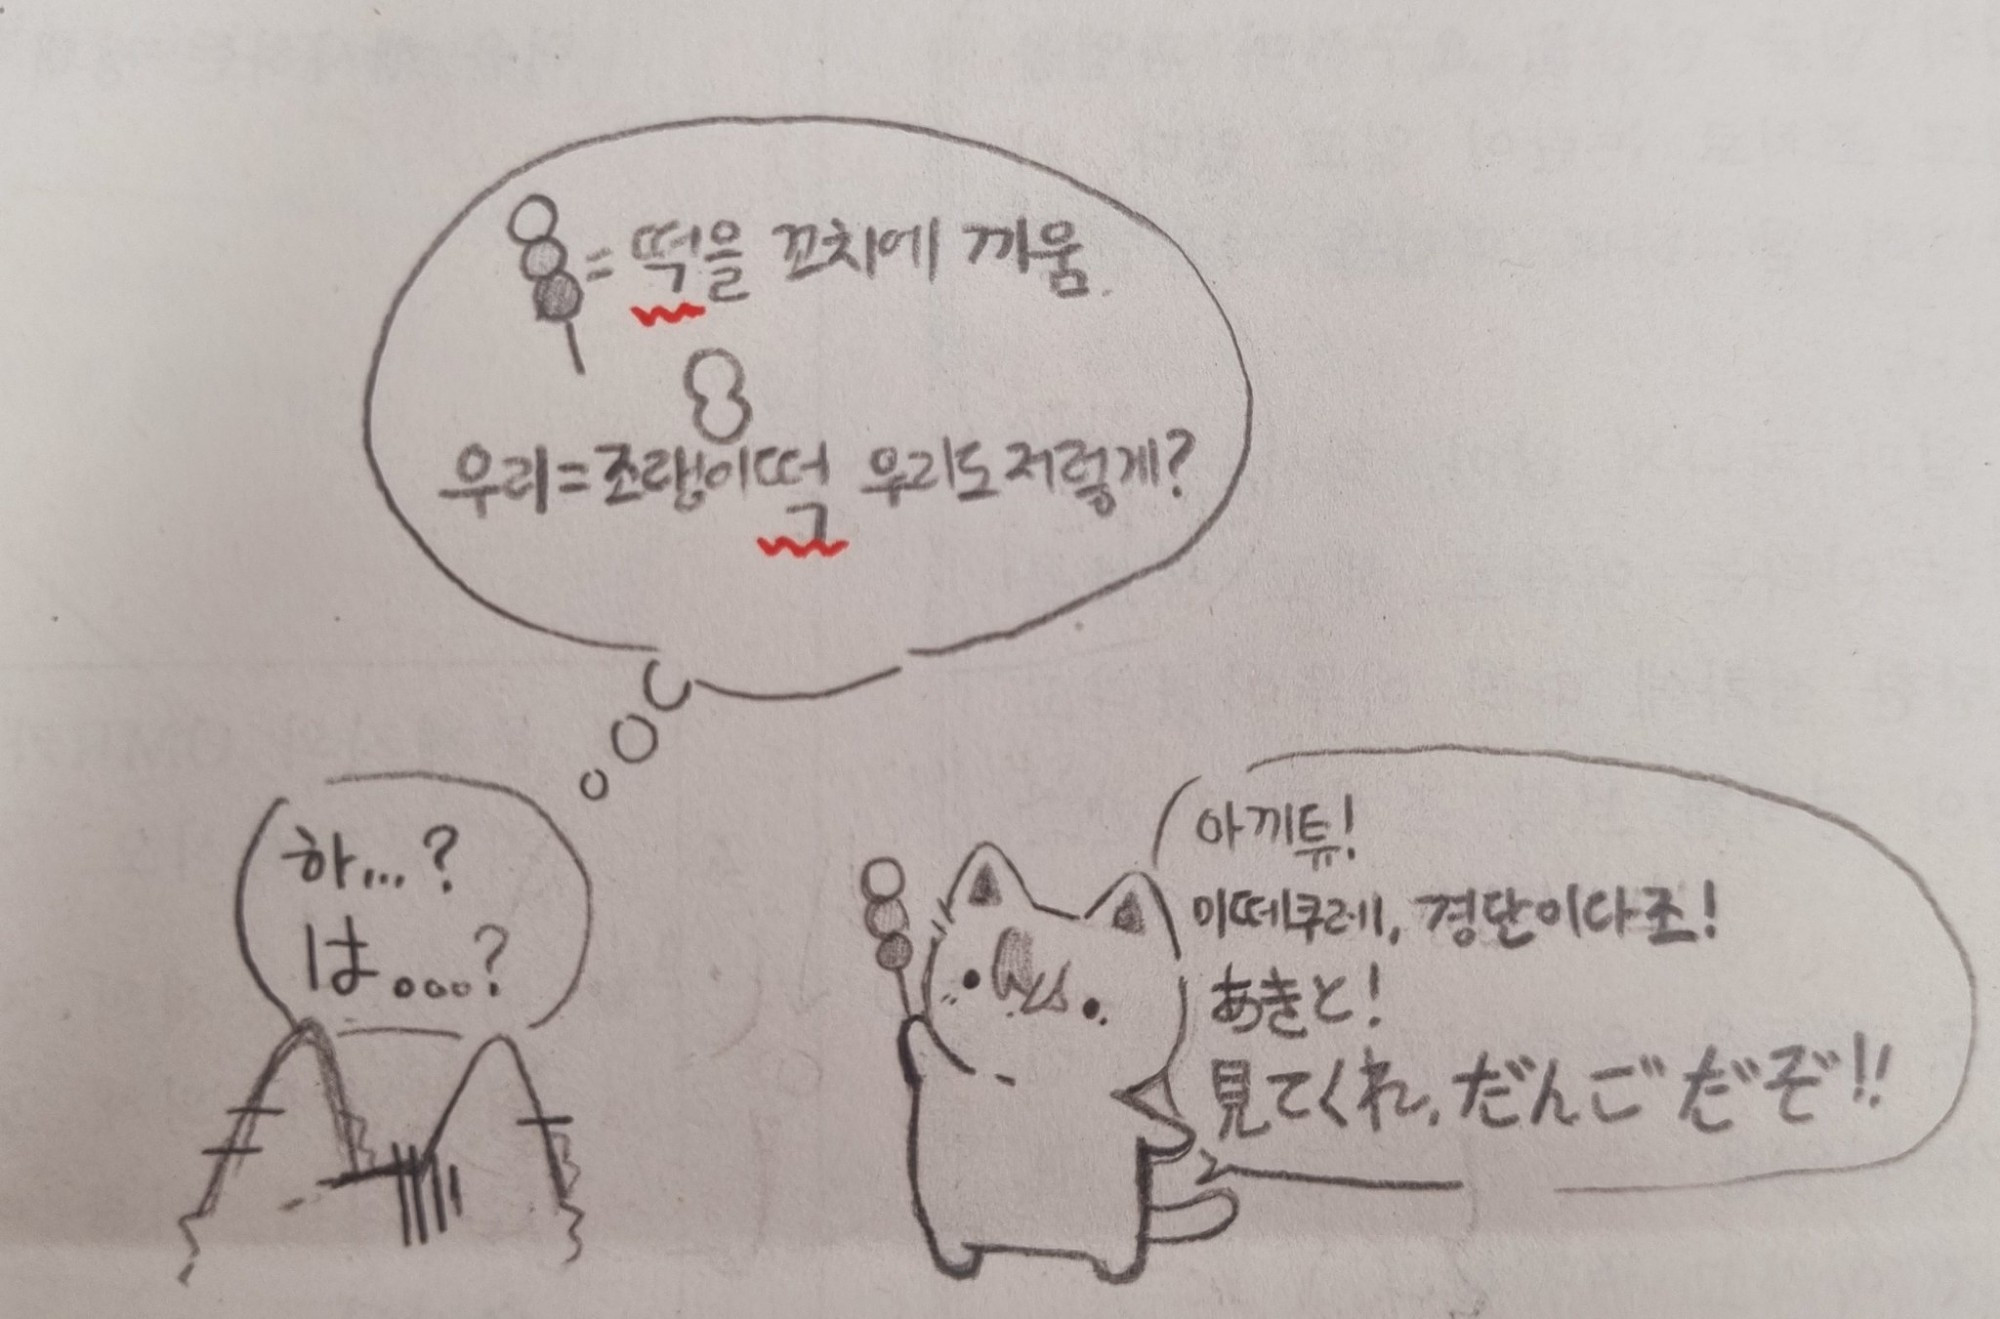 = 떡을 꼬치에 끼움.
우리=조랭이떡 우리도저렇게?
하...?
は。。。。?
아끼튜!
미떼쿠레, 경단이다조!
あきと!
見てくれ, だんごだぞ!!